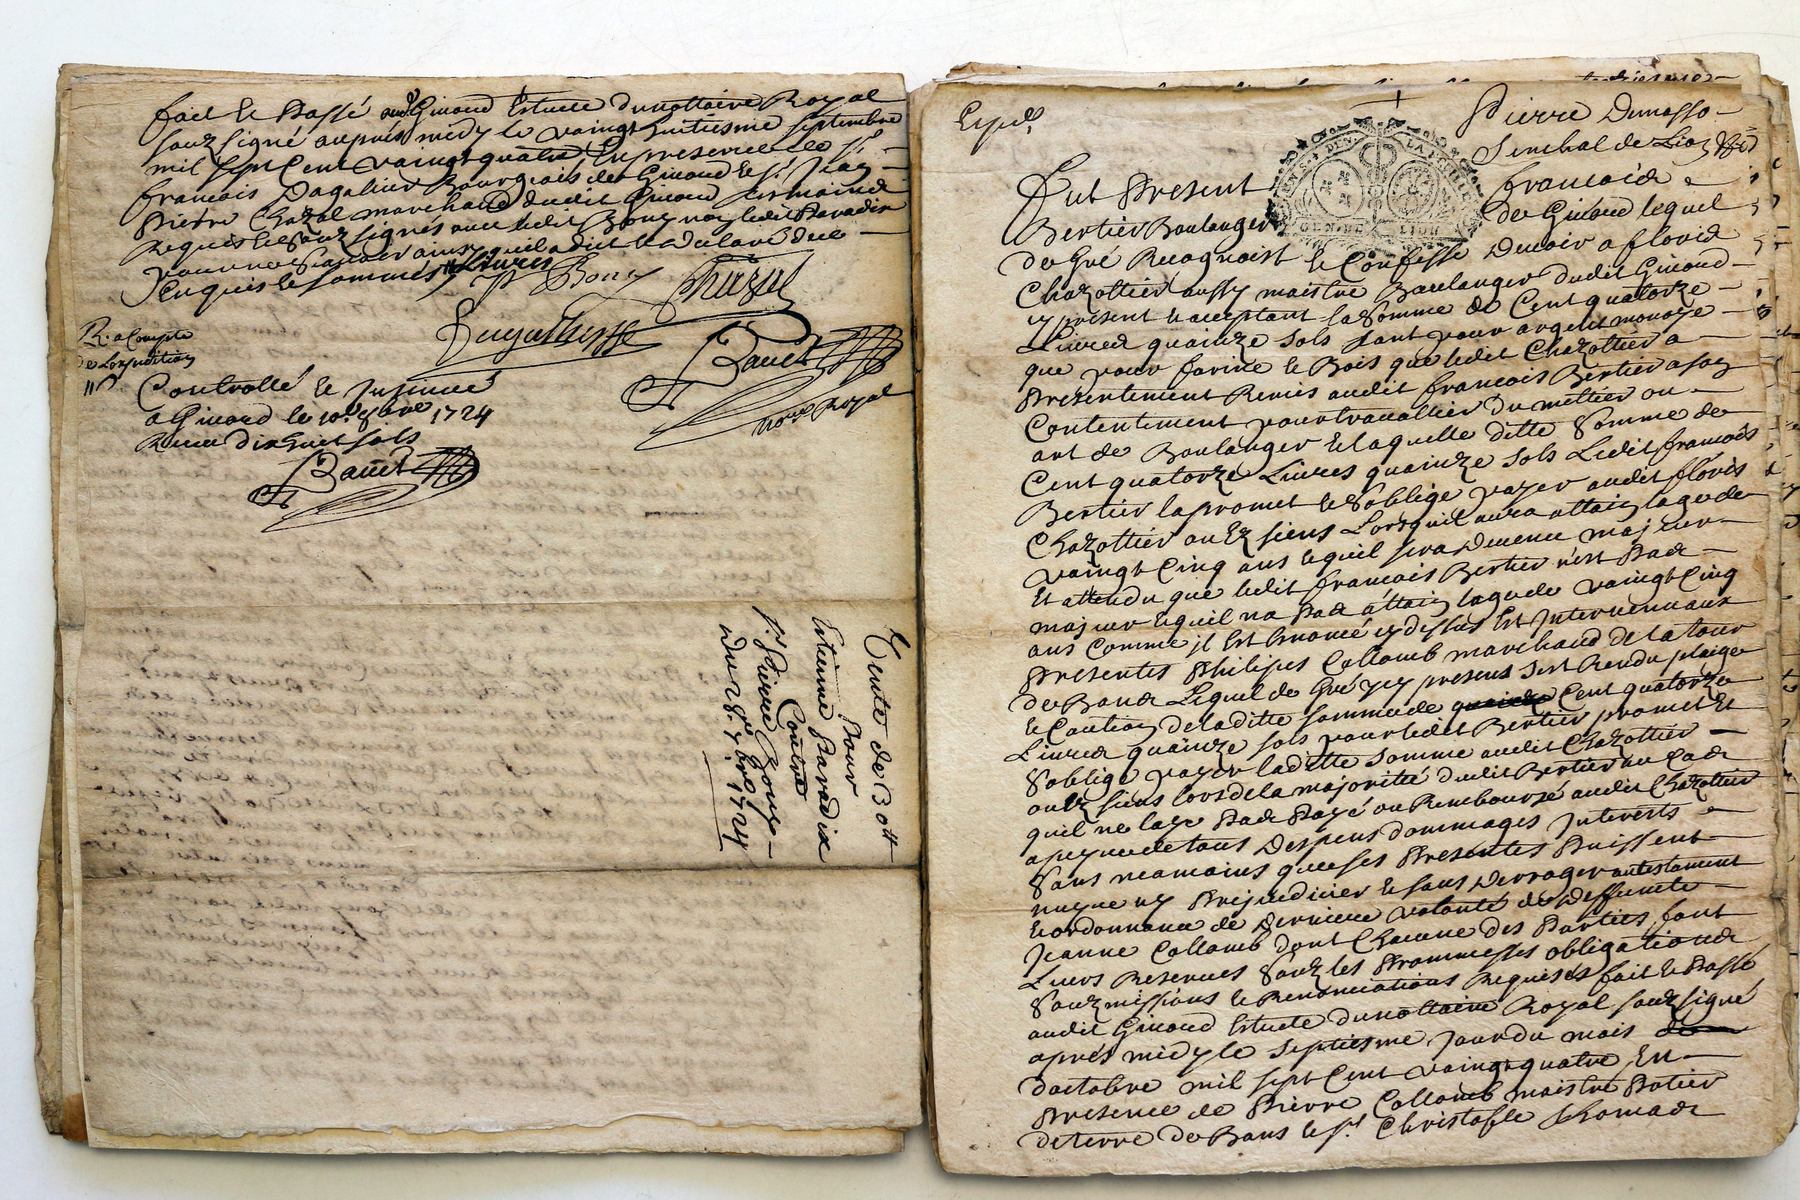 fait et Passé audt Giuord Estude du nottaire Royal
souz signé aupres midy le vaingt huitiesme septembre
mil sept Cent vaingt quatre En presence de sr
francois Dagallier Bourgeois de Giuord et sr Jean
Pierre Chazal marchand dudit Giuord
Requis et souz signés auec ledit Bony non ledit Paradix
pour ne scauoir ainsy quil a dit et declaré de ce
Enquis et sommés
Bony Chazal
Bauet
notre Royal
R. a Compte
de Lexpedition
Controllé et Insinué
a Giuord le 10e 8bre 1724
Receu dix huit sols
Bauet
Vente de 130tt
Pour
Estienne Paradix
Contre
sr Pierre Bony
du 28e 7bre 1724
Expéé
Pierre Dumasso
Senechal de Lion
GEN. DE LION
Fut Present francois
Bertier Boulanger de Giuord lequel
de Gré Recognoist et Confesse Deuoir a floris
Chazottier aussy maistre Boulanger dudit Giuord
cy present et acceptant la somme de Cent quatorze
Liures quainze sols tant pour argent monoye
que pour farine et Bois que ledit Chazottier a
Presentement Remis audit francois Bertier a son
Contentement pour trauallier du mettier ou
art de Boulanger Et laquelle ditte Somme de
Cent quatorze Liures quainze sols Ledit francois
Bertier la promet et soblige payer audit floris
Chazottier ou Ez siens Lorsquil aura attain lage de
vaingt Cinq ans Et quil sera Deuenu majeur
Et attendu que ledit francois Bertier nest Pas
majeur Et quil na Pas attain lage de vaingt Cinq
ans Comme jl Est Enoncé cy dessus Est Interuenu aux
Presentes Philipes Collomb marchand de la tour
de Bans Lequel de Gré cy present sest Rendu plaige
et Caution de la ditte somme de quainze Cent quatorze
Liures quainze sols pour ledit Bertier promet Et
soblige payer laditte somme audit Chazottier
ou Ez siens lors de la majorité dudit Bertier au Cas
quil ne laye Pas Payé ou Remboursé audit Chazottier
a peyne de tous Despens dommages Interests
sans neamoins que ses Presentes Puissent
nuyre ny Prejudicier et sans Derroger au testament
et ordonnance de Derniere volonté de Deffuncte
Jeanne Collomb dont Chacune des Parties font
Leurs Reserues Souz les Prommesses obligations
Souzmissions et Renonciations Requises fait et Passé
audit Giuord Estude du nottaire Royal souz signé
aprés midy le septiesme jour du mois de
doctobre mil sept Cent vaingt quatre En
Presence de Pierre Collomb maistre Potier
de terre de Bans et sr Christofle Thomas